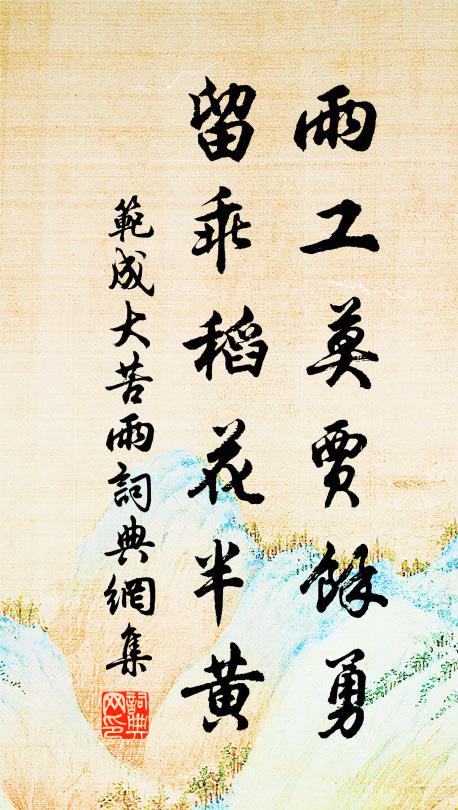 雨工莫賈餘勇
留乖稻花半黃
範成大苦雨詞典網集
詞典網印